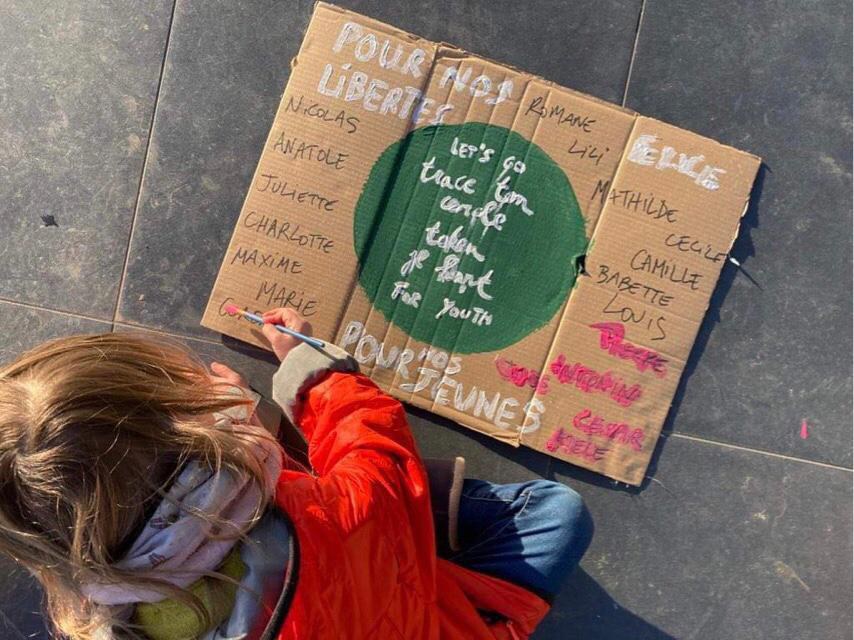 POUR NOS
LIBERTES
NICOLAS
ANATOLE
JULIETTE
CHARLOTTE
MAXIME
MARIE
LET'S GO
trace ton
cercle
teken
je hart
FOR YOUTH
POUR nos
JEUNES
ROMANE
LILI
MATHILDE
CECILE
CAMILLE
BABETTE
LOUIS
PIERRE
CESAR